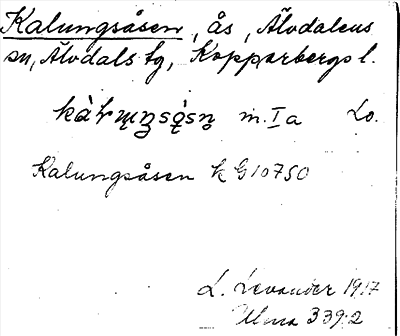 Kalungsåsen, ås, Älvdalens
sn, Älvdals tg, Kopparbergs l.
m. I a Lo.
Kalungsåsen k G 10750
L. Levander 1917
Ulma 339:2